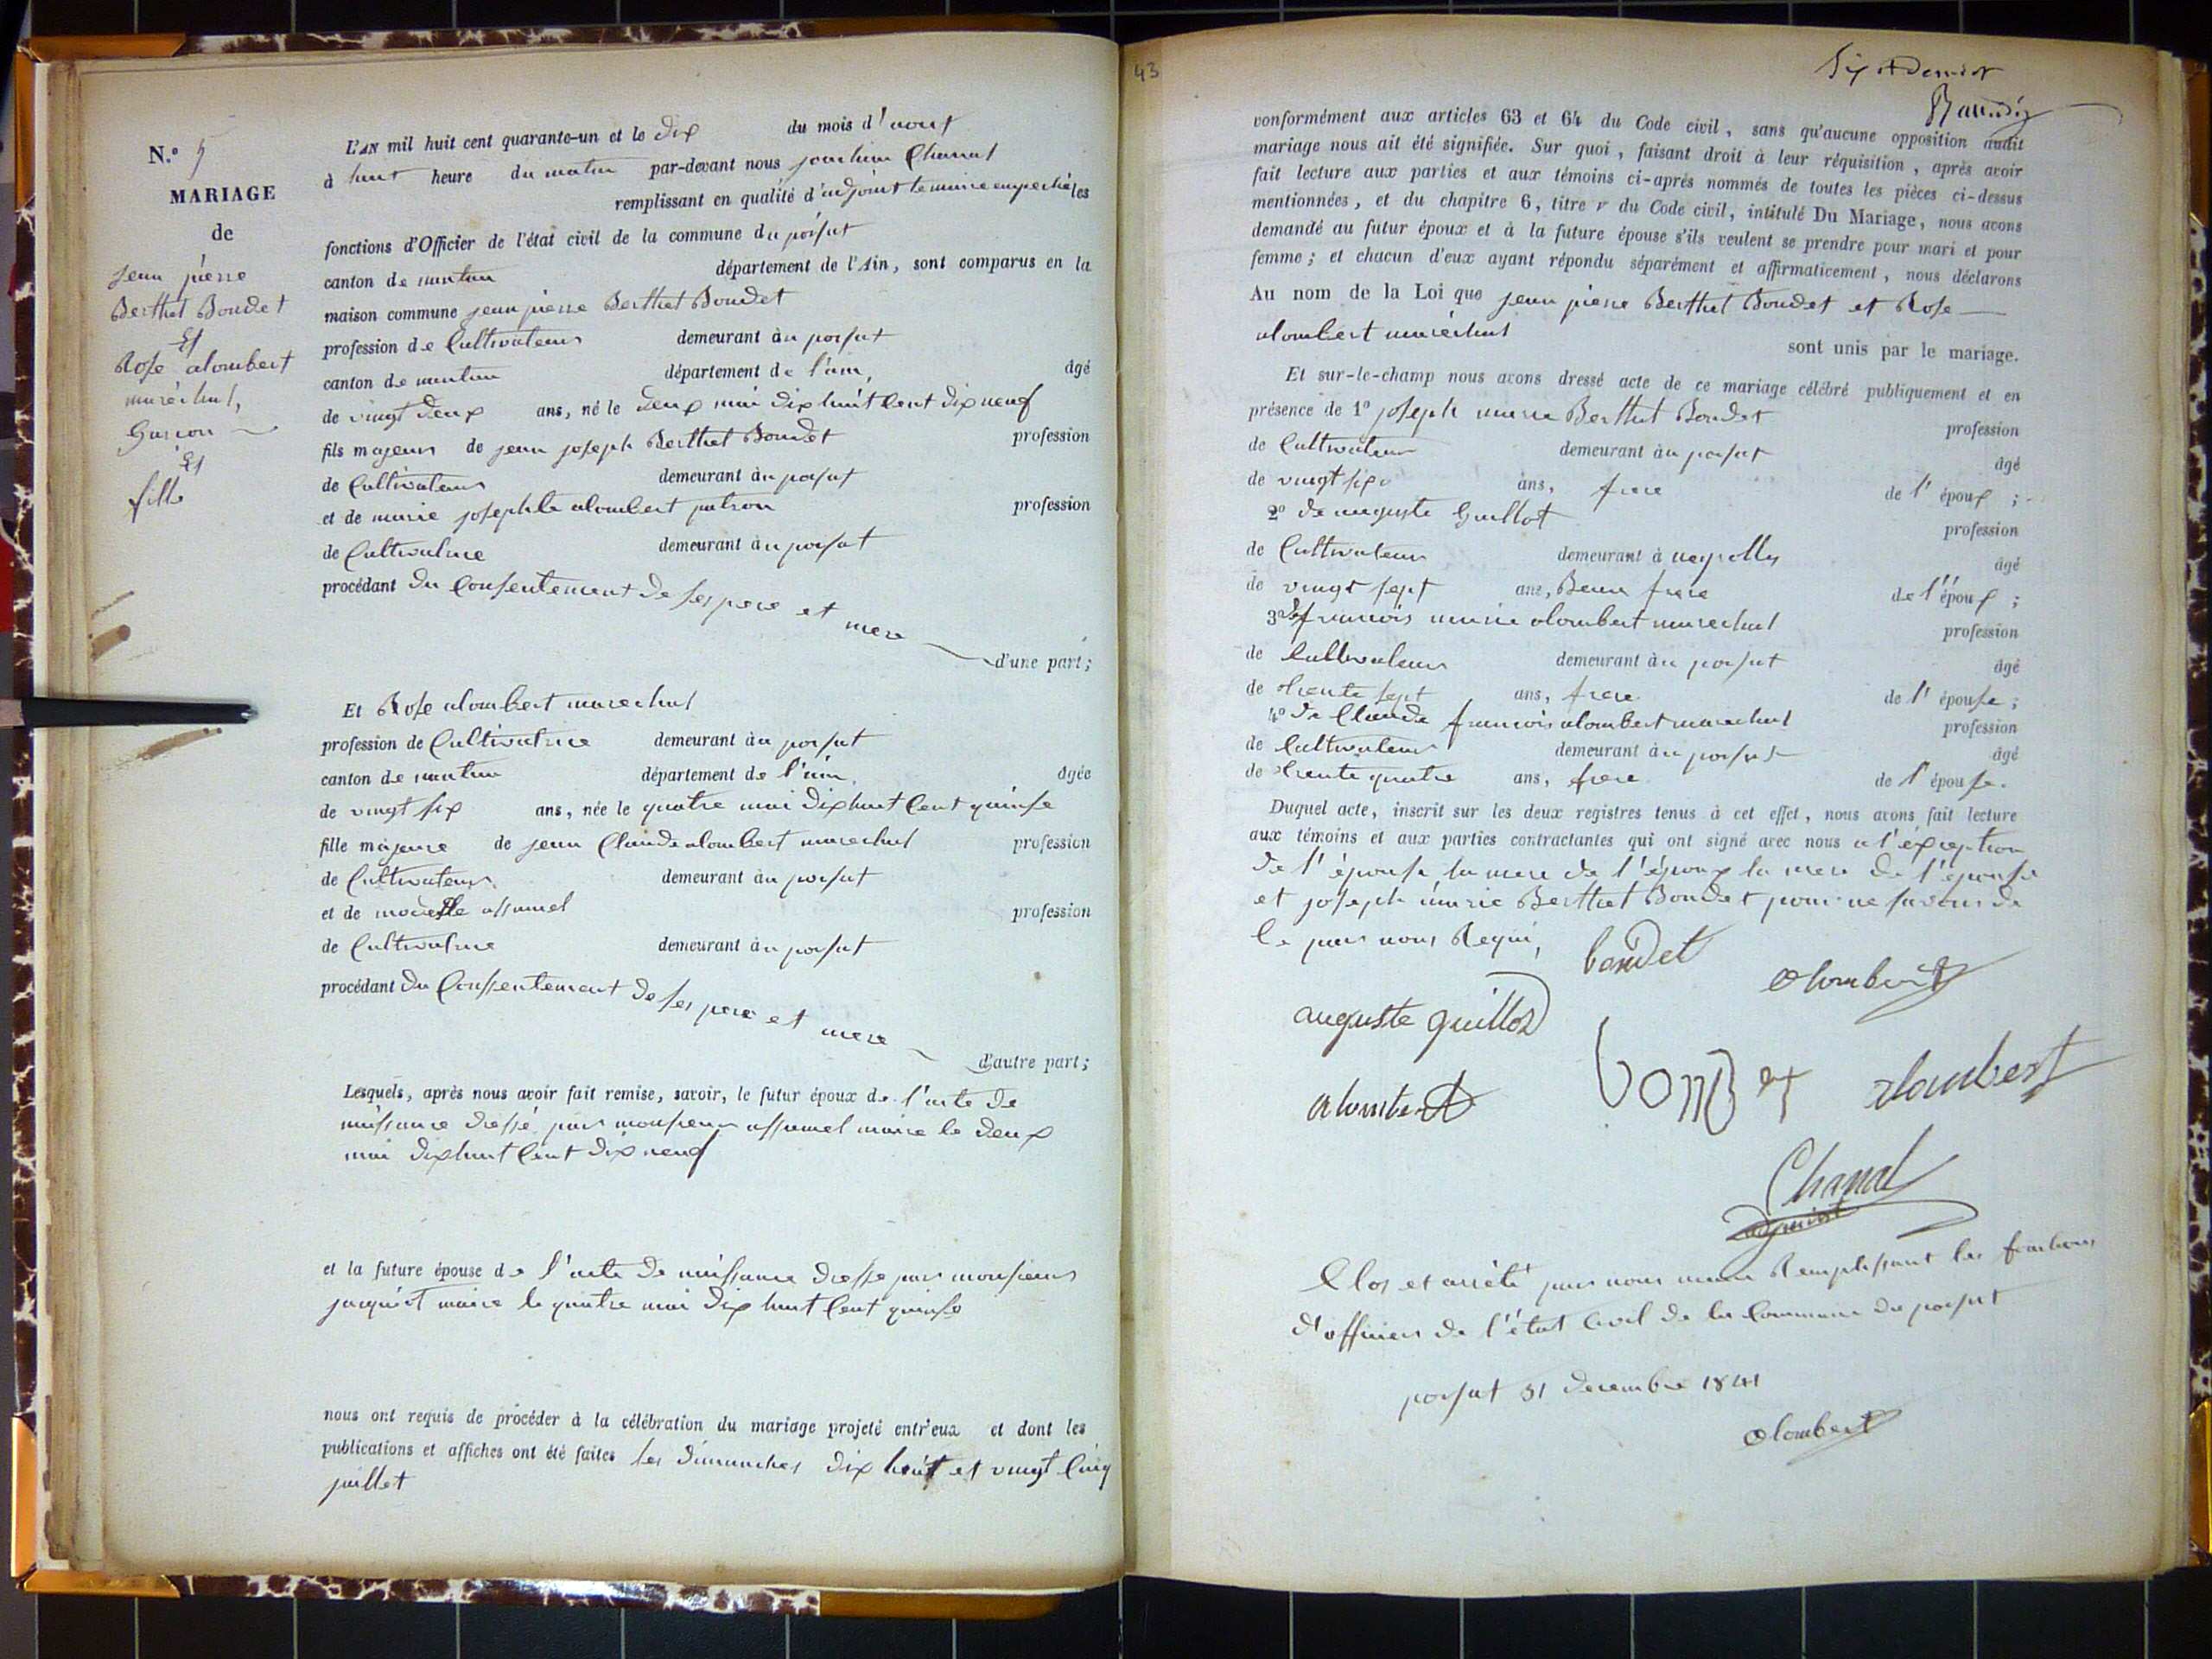 N.o 5
MARIAGE
de
jean pierre
Berthet Bondet
Et
Rose alombert
maréchal,
Garcon
Et
fille
L'AN mil huit cent quarante-un et le dix du mois d'aout
à huit heure du matin par-devant nous joachim Chanal
remplissant en qualité d'adjoint le maire empeché les
fonctions d'Officier de l'état civil de la commune du poisat
canton de nantua département de l'Ain, sont comparus en la
maison commune jean pierre Berthet Bondet
profession de Cultivateur demeurant au poisat
canton de nantua département de l'ain, âgé
de vingt deux ans, né le deux mai dix huit Cent dix neuf
fils majeur de jean joseph Berthet Bondet profession
de Cultivateur demeurant au poisat
et de marie josephte alombert patron profession
de Cultivatrice demeurant au poisat
procédant du Consentement de ses pere et mere
d'une part;
Et Rose alombert marechal
profession de Cultivatrice demeurant au poisat
canton de nantua département de l'ain, âgée
de vingt six ans, née le quatre mai dix huit Cent quinse
fille majeure de jean Claude alombert marechal profession
de Cultivateur demeurant au poisat
et de assumel profession
de Cultivatrice demeurant au poisat
procédant du Conssentement de ses pere et mere
d'autre part;
Lesquels, après nous avoir fait remise, savoir, le futur époux de l'acte de
naissance dressé par monsieur assumel maire le deux
mai dix huit Cent dix neuf
et la future épouse de l'acte de naissance dresse par monsieur
jacquiot maire le quatre mai dix huit Cent quinse
nous ont requis de procéder à la célébration du mariage projeté entr'eux et dont les
publications et affiches ont été faites les dimanches dix huit et vingt Cinq
juillet
43
Six et dernier
conformément aux articles 63 et 64 du Code civil, sans qu'aucune opposition audit
mariage nous ait été signifiée. Sur quoi, faisant droit à leur réquisition, après avoir
fait lecture aux parties et aux témoins ci-après nommés de toutes les pièces ci-dessus
mentionnées, et du chapitre 6, titre v du Code civil, intitulé Du Mariage, nous avons
demandé au futur époux et à la future épouse s'ils veulent se prendre pour mari et pour
femme; et chacun d'eux ayant répondu séparément et affirmativement, nous déclarons
Au nom de la Loi que jean pierre Berthet Bondet et Rose
alombert maréchal
sont unis par le mariage.
Et sur-le-champ nous avons dressé acte de ce mariage célébré publiquement et en
présence de 1o joseph marie Berthet Bondet profession
de Cultivateur demeurant au poisat âgé
de vingt six ans, frere de l'époux;
2o de auguste Guillot profession
de Cultivateur demeurant à neyrolles âgé
de vingt sept ans, Beau frere de l'époux;
3o de francois marie alombert marechal profession
de Cultivateur demeurant au poisat âgé
de trente sept ans, frere de l'épouse;
4o de Claude francois alombert marechal profession
de Cultivateur demeurant au poisat âgé
de trente quatre ans, frere de l'épouse.
Duquel acte, inscrit sur les deux registres tenus à cet effet, nous avons fait lecture
aux témoins et aux parties contractantes qui ont signé avec nous a l'éxception
de l'épouse la mere de l'époux la mere de l'épouse
et joseph marie Berthet Bondet pour ne savoir de
Ce par nous Requi,
bondet
alombert
auguste guillot
bondet
alombert
alombert
Chanal
adjoint
Clos et arrété par nous maire Remplissant les fonctions
d'officier de l'état Civil de la Commune du poisat
poisat 31 decembre 1841
alombert